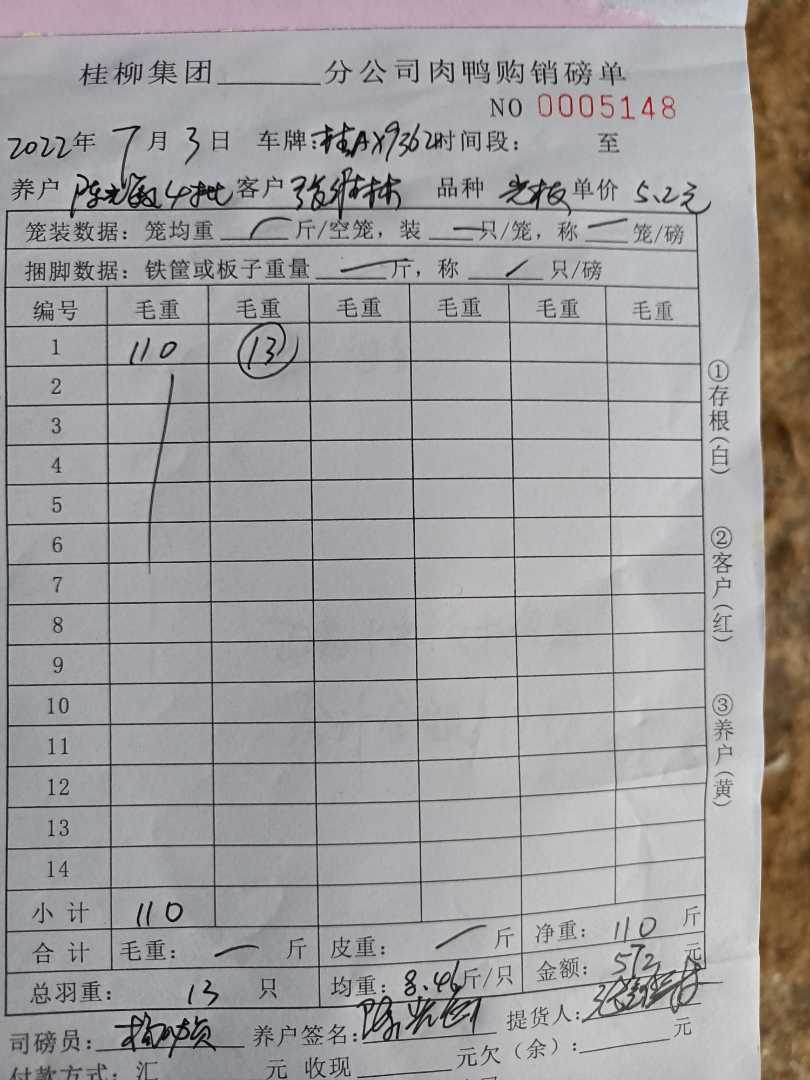 桂柳集团______分公司肉鸭购销磅单
NO 0005148
2022年 7月 3日 车牌:桂AX9362时间段: 至
养户 4批 客户 品种 光板 单价 5.2元
笼装数据: 笼均重 — 斤/空笼, 装 — 只/笼, 称 — 笼/磅
捆脚数据: 铁筐或板子重量 — 斤, 称 — 只/磅
编号 毛重 毛重 毛重 毛重 毛重 毛重
1 110 13
2
3
4
5
6
7
8
9
10
11
12
13
14
小计 110
合计 毛重: — 斤 皮重: — 斤 净重: 110 斤
总羽重: 13 只 均重: 8.46斤/只 金额: 572 元
司磅员: 养户签名: 提货人:
付款方式: 汇 元 收现______元欠(余):______元
①存根(白)
②客户(红)
③养户(黄)